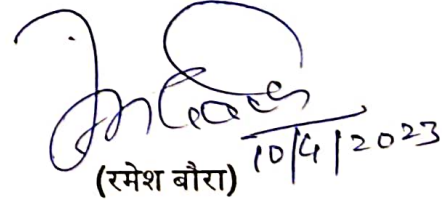 10/4/2023
(रमेश बौरा)